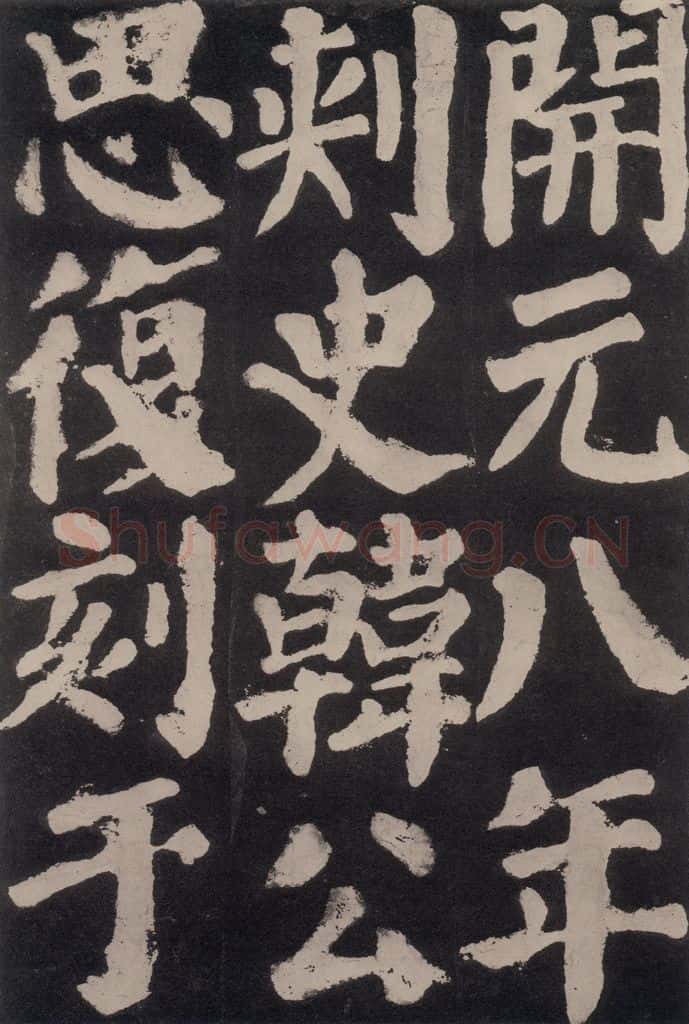 開元八年
刾史韓公
思復刻于
Shufawang.CN